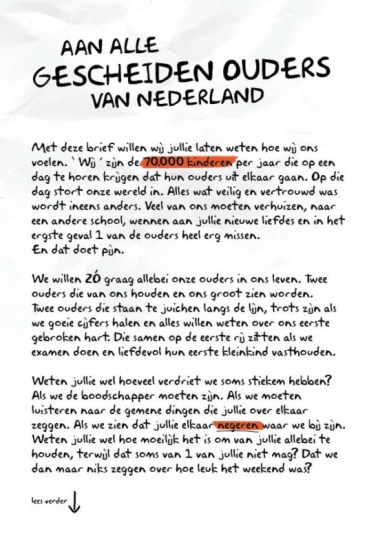 AAN ALLE
GESCHEIDEN OUDERS
VAN NEDERLAND
Met deze brief willen wij jullie laten weten hoe wij ons
voelen. 'Wij' zijn de 70.000 kinderen per jaar die op een
dag te horen krijgen dat hun ouders uit elkaar gaan. Op die
dag stort onze wereld in. Alles wat veilig en vertrouwd was
wordt ineens anders. Veel van ons moeten verhuizen, naar
een andere school, wennen aan jullie nieuwe liefdes en in het
ergste geval 1 van de ouders heel erg missen.
En dat doet pijn.
We willen ZÓ graag allebei onze ouders in ons leven. Twee
ouders die van ons houden en ons groot zien worden.
Twee ouders die staan te juichen langs de lijn, trots zijn als
we goeie cijfers halen en alles willen weten over ons eerste
gebroken hart. Die samen op de eerste rij zitten als we
examen doen en liefdevol hun eerste kleinkind vasthouden.
Weten jullie wel hoeveel verdriet we soms stiekem hebben?
Als we de boodschapper moeten zijn. Als we moeten
luisteren naar de gemene dingen die jullie over elkaar
zeggen. Als we zien dat jullie elkaar negeren waar we bij zijn.
Weten jullie wel hoe moeilijk het is om van jullie allebei te
houden, terwijl dat soms van 1 van jullie niet mag? Dat we
dan maar niks zeggen over hoe leuk het weekend was?
lees verder